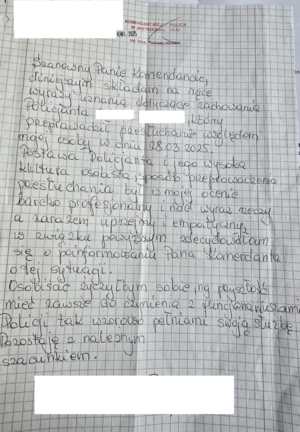 KOMENDANT POLICJI
W JASTRZĘBIU ZDROJU
Szanowny Panie Komendancie,
niniejszym składam na ręce
wyrazy uznania dotyczące zachowania
Policjanta który
przeprowadził przesłuchanie względem
mojej osoby w dniu 28.03.2025.
Postawa Policjanta i jego wysoka
kultura osobista, sposób przeprowadzenia
przesłuchania był w mojej ocenie
bardzo profesjonalny i nad wyraz rzeczy
a zarazem uprzejmy i empatyczny
w związku powyższym zdecydowałam
się o poinformowaniu Pana Komendanta
o tej sytuacji.
Osobiście życzyłbym sobie na przyszłość
mieć zawsze do czynienia z funkcjonariuszami
Policji tak wzorowo pełniącymi swoją służbę
Pozostaję z należnym
szacunkiem.